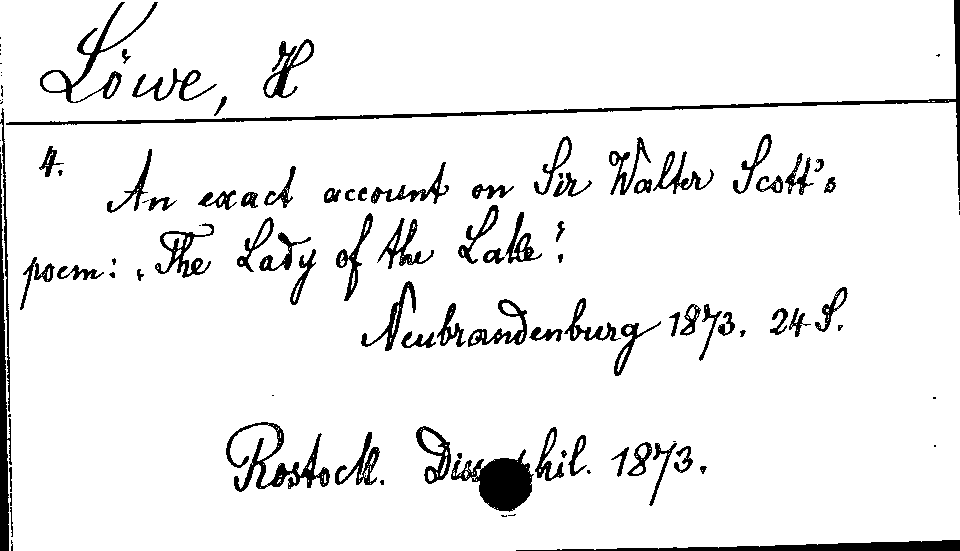 Löwe, H
4.
An exact account on Sir Walter Scott's
poem: ‚The Lady of the Lake‘.
Neubrandenburg 1873. 24 S.
Rostock. Diss. phil. 1873.